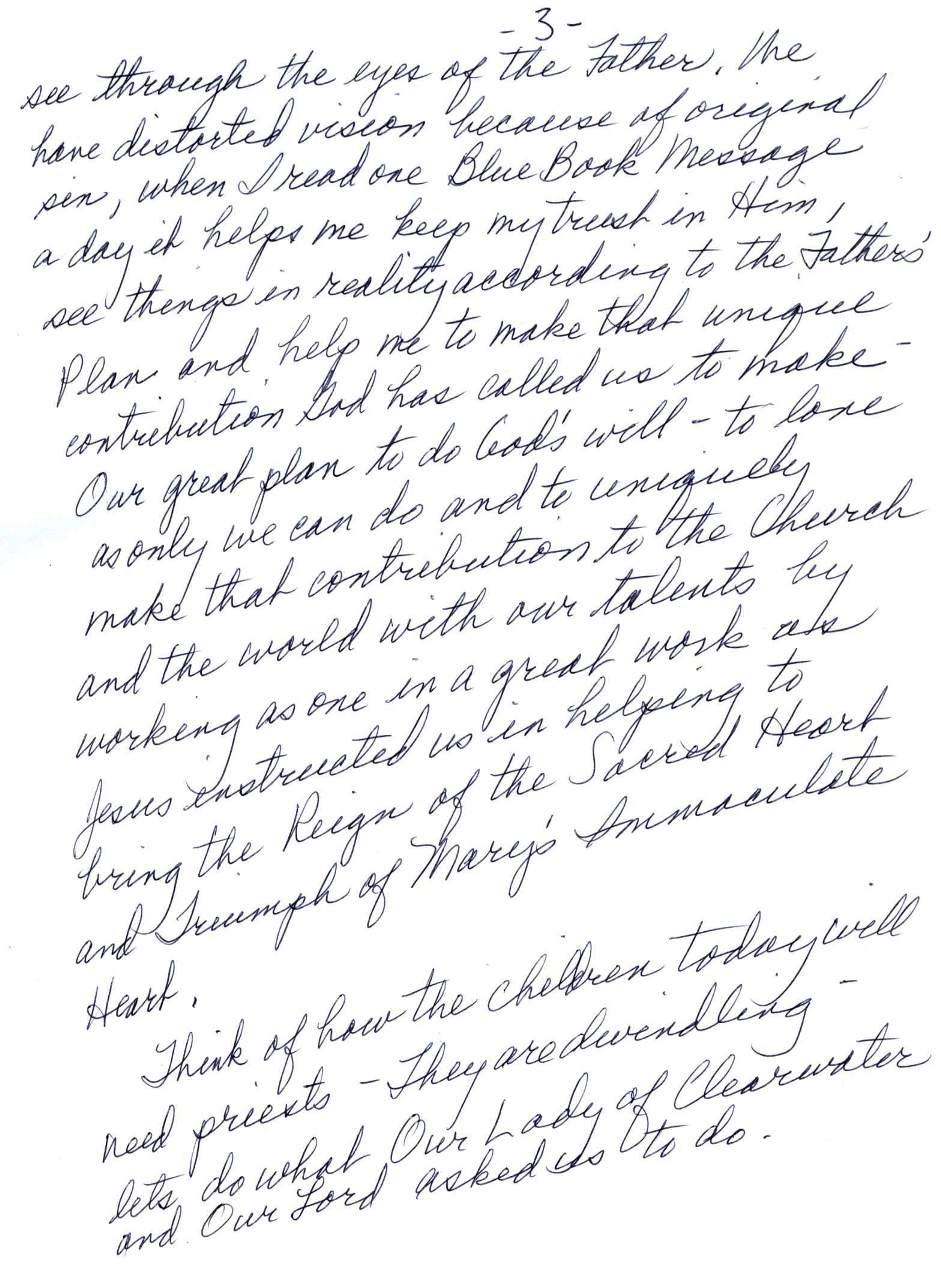 - 3 -
see through the eyes of the Father. We
have distorted vision because of original
sin, when I read one Blue Book Message
a day it helps me keep my trust in Him,
see things in reality according to the Father's
Plan and help me to make that unique
contribution God has called us to make -
Our great plan to do God's will - to love
as only we can do and to uniquely
make that contribution to the Church
and the world with our talents by
working as one in a great work as
Jesus instructed us in helping to
bring the Reign of the Sacred Heart
and Triumph of Mary's Immaculate
Heart.
Think of how the children today will
need priests - They are dwindling -
lets do what Our Lady of Clearwater
and Our Lord asked us to do.